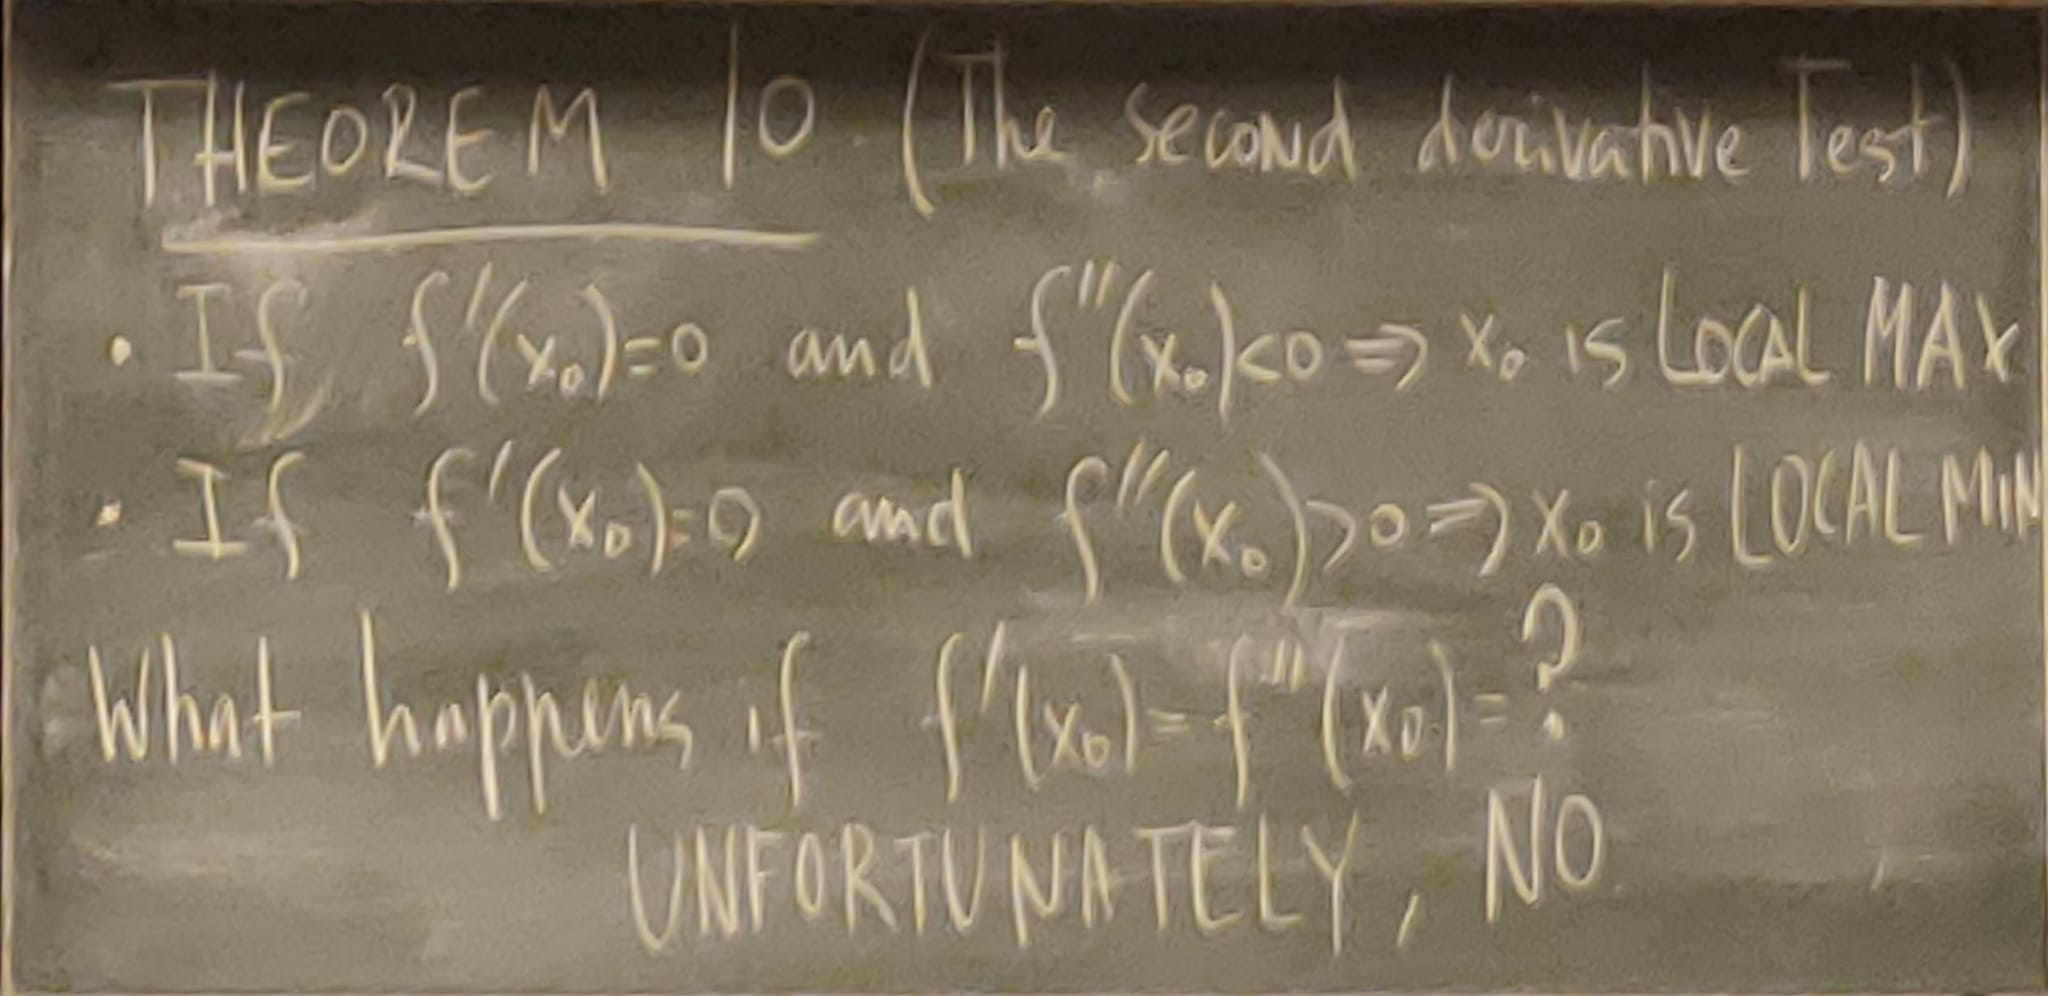 THEOREM 10 (The second derivative Test)
• If f'(x₀)=0 and f''(x₀)<0 ⇒ x₀ is LOCAL MAX
• If f'(x₀)=0 and f''(x₀)>0 ⇒ x₀ is LOCAL MIN
What happens if f'(x₀)=f''(x₀)=?
UNFORTUNATELY, NO